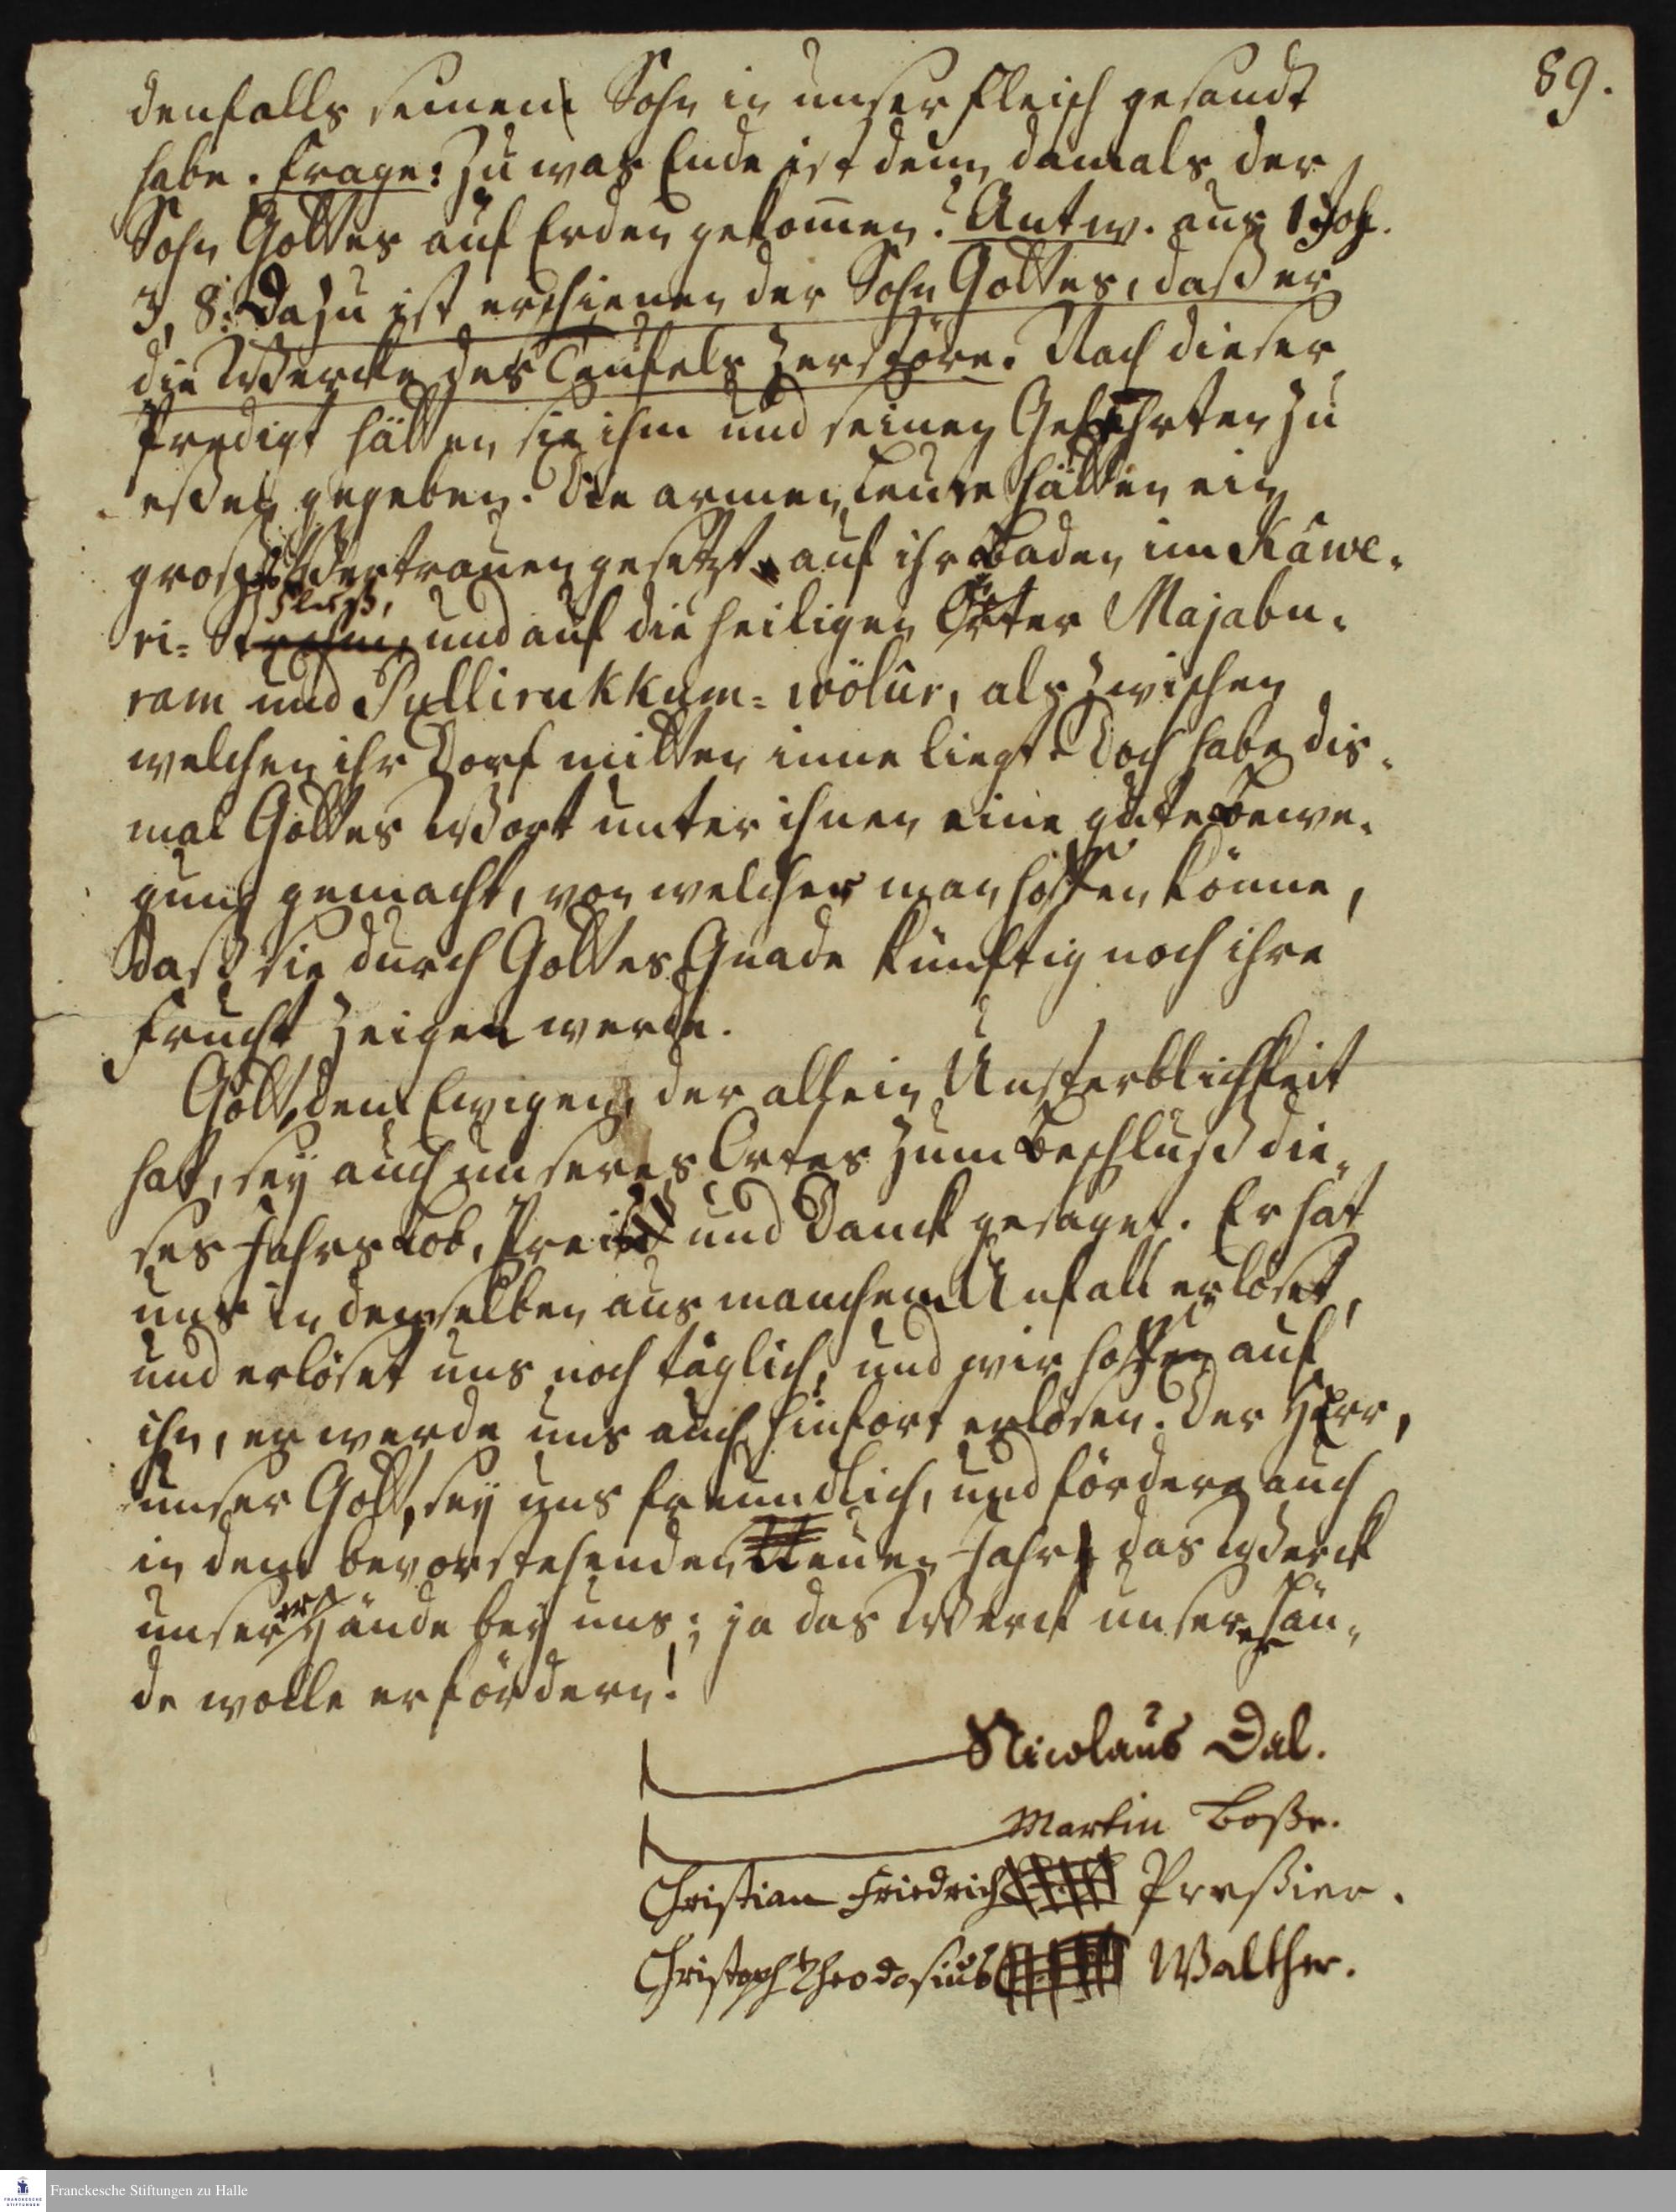 89.
denfalls seinen Sohn in unser Fleisch gesandt
habe. Frage: Zu was Ende ist denn damals der
Sohn Gottes auf Erden gekomen? Antw. aus 1 Joh.
3, 8: Dazu ist erschienen der Sohn Gottes, daß er
die Wercke des Teufels zerstöre. Nach dieser
Predigt hätten sie ihm und seinen Gefehrten zu
eßen gegeben. Die armen Leute hätten ein
großes Vertrauen gesetzt auf ihr Baden im Kâwe-
ri- Strohm, Fluß, und auf die heiligen Örter Majabu-
ram und Pullirukkum-wölûr, als zwischen
welchen ihr Dorf mitten inne liegt. Doch habe dis-
mal Gottes Wort unter ihnen eine gute Bewe-
gung gemacht, von welcher man hoffen könne,
daß sie durch Gottes Gnade künftig noch ihre
Frucht zeigen werde.
Gott, dem Ewigen, der allein Unsterblichkeit
hat, sey auch unseres Ortes zum Beschluß die-
ses Jahrs Lob, Preis und Danck gesaget. Er hat
uns in demselben aus manchem Unfall erlöset,
und erlöset uns noch täglich, und wir hoffen auf
ihn, er werde uns auch hinfort erlösen. Der HErr,
unser Gott, sey uns freundlich, und fördere auch
in dem bevorstehenden Neuen Jahr das Werck
unserer Hände bey uns; ja das Werck unserer Hän-
de wolle er fördern!
Nicolaus Dal.
Martin Boße.
Christian Friedrich Preßier.
Christoph Theodosius Walther.
Franckesche Stiftungen zu Halle
FRANCKESCHE
STIFTUNGEN